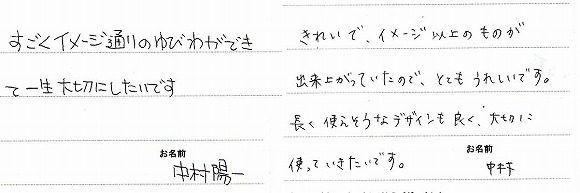 すごくイメージ通りのゆびわができ
て一生大切にしたいです
お名前
中村陽一
きれいで、イメージ以上のものが
出来上がっていたので、とてもうれしいです。
長く使えそうなデザインも良く、大切に
使っていきたいです。
お名前
中村